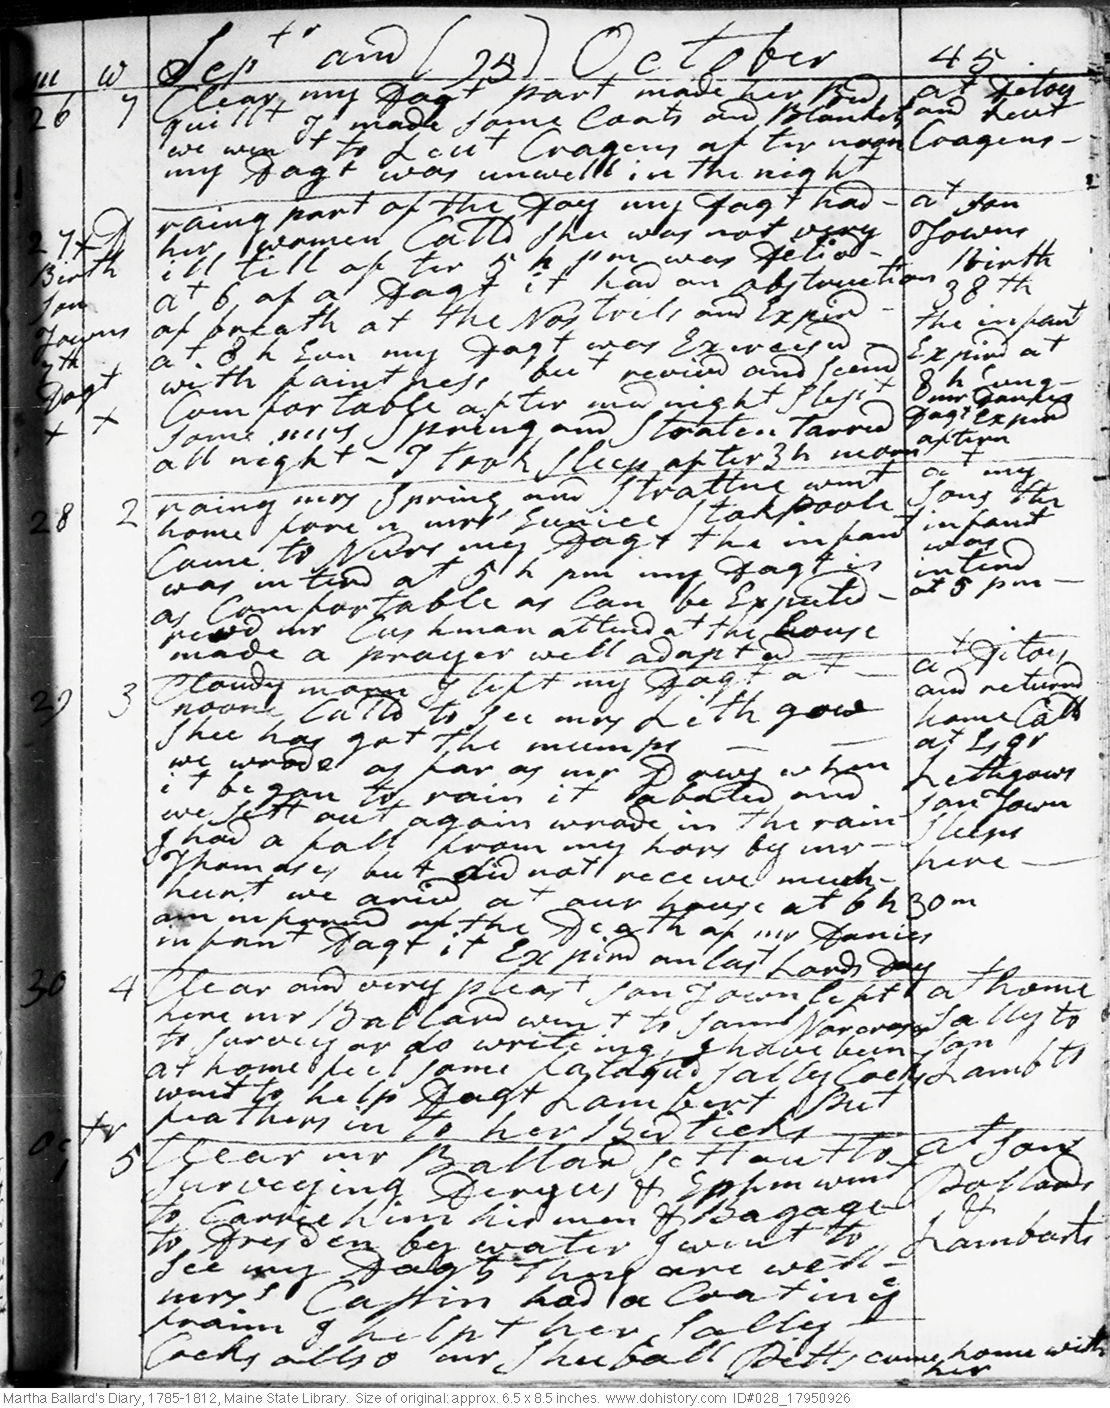 m w Sept r and (25) October 45
26 7 Clear my Dagt part made her Bed at Ditoes
quillt I made some Coats and Blankets and Leut
we went to Leut Cragens after noon Cragens -
my Dagt was unwell in the night
27 + D raing part of the Day my Dagt had - at son
Birth her women Calld Shee was not very Towns
son ill till after 5 h pm was Delivd - Birth
Towns at 6 of a Dagt it had an obstruction 38th
7th of breath at the Nostrils and Expird - the infant
Dagt at 8 h Evn my Dagt was Exercised - Expird at
+ + with faintness but revivd and seemd 8 h Evng -
Comfortable after midnight Slept mr Davies
some mrs Spring and Straten tarred Dagt Expird
all night - I took sleep after 3 h morn aftern
28 2 raing mrs Spring and Strattne went at my
home fore n mrs Eunice Stakpoole sons the
Came to Nurs my Dagt the infant infant
was interd at 5 h pm my Dagt is was
as Comfortable as Can be Expected - interd
revd mr Cushman attend at the house at 5 pm -
made a prayer well adaptd -
29 3 Cloudy morn I left my Dagt at - at Ditoes
noon Calld to see mrs Lithgow and returnd
Shee has got the mumps - - home Calld
we wrode as far as mr Daws when at Esqr
it began to rain it abated and Lethgows
we sett out again wrode in the rain son Town
I had a fall from my hors by mr - Sleeps
Thomases but did not receive much - here -
hurt we arivd at our house at 6 h 30 m
am informd of the Death of mr Davies
infant Dagt it Expird on last Lords Day
30 4 Clear and very pleast son Town left at home
here mr Ballard went to Saml Norcross Sally to
to survey or do writeing I have been son
at home feel some fatagud Sally Cocks Lambts
went to help Dagt Lambert Put
feathers in to her Bed ticks
Octr
1 5 Clear mr Ballard sett out to at sons
surveying Dingleys & Ephm went Pollards
to Carrie him his men & Bagage &
to Dresden by water I went to Lambarts
see my Dagts they are well -
mrss Cassin had a Coating
from I helpt her Sally -
Cocks allso mr Sheball Pitts came home with
her
Martha Ballard's Diary, 1785-1812, Maine State Library. Size of original: approx. 6.5 x 8.5 inches. www.dohistory.com ID#028_17950926